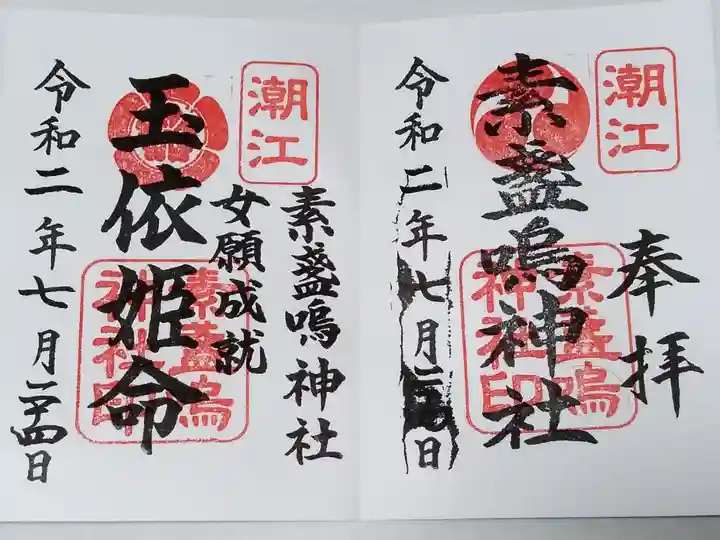 潮江
奉拝
素盞嗚神社
素盞嗚
神社印
令和二年七月二四日
潮江
素盞嗚神社
女願成就
玉依姫命
素盞嗚
神社印
令和二年七月二四日